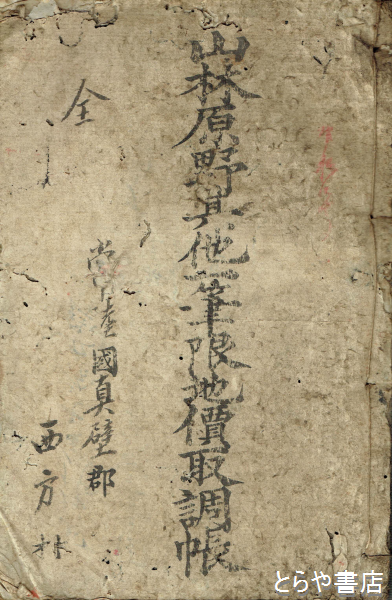 山林原野其他一筆限地價取調帳
全
常陸國真壁郡
西方村
とらや書店